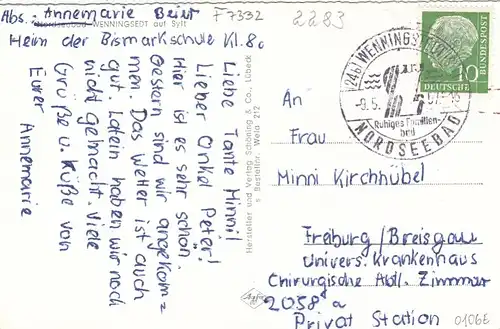 Abs.: Annemarie Beist F7332
Nordseebad WENNINGSEDT auf Sylt
Heim der Bismarkschule Kl. 8a
Liebe Tante Minni!
Lieber Onkel Peter!
Hier ist es sehr schön.
Gestern sind wir angekom=
men. Das Wetter ist auch
gut. Latein haben wir noch
nicht gemacht. Viele
Grüße u. Küße von
Eurer Annemarie
Hersteller und Verlag Schöning & Co., Lübeck
Bestellnr. Weia 212
Agfa
2283
(24b) WENNINGSTEDT
-9.5.
Ruhiges Familien-
bad
NORDSEEBAD
DEUTSCHE
BUNDESPOST
10
An
Frau
Minni Kirchhübel
Freiburg / Breisgau
Univers. Krankenhaus
Chirurgische Abtl. Zimmer
2058 a
Privat Station
01066